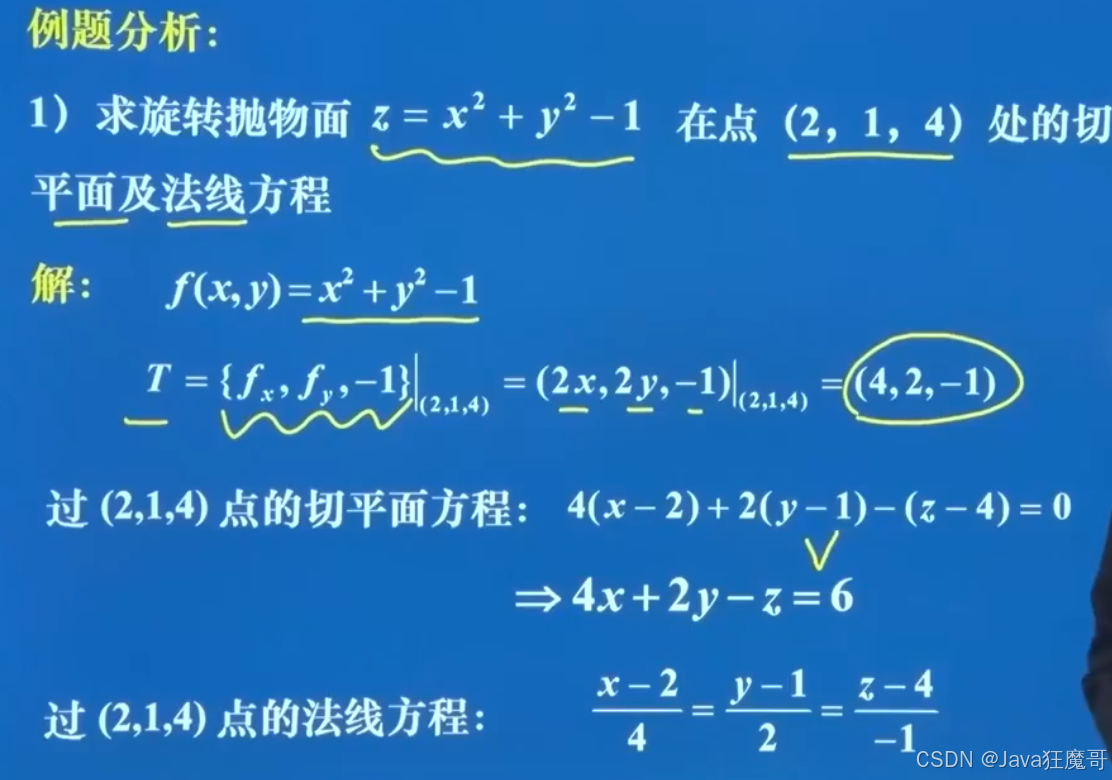 例题分析:
1）求旋转抛物面 z = x² + y² − 1 在点（2，1，4）处的切
平面及法线方程
解: f(x, y) = x² + y² − 1
T = {fₓ, f_y, −1}|(2,1,4) = (2x, 2y, −1)|(2,1,4) = (4, 2, −1)
过 (2,1,4) 点的切平面方程: 4(x − 2) + 2(y − 1) − (z − 4) = 0
⇒ 4x + 2y − z = 6
过 (2,1,4) 点的法线方程: (x − 2)/4 = (y − 1)/2 = (z − 4)/−1
CSDN @Java狂魔哥